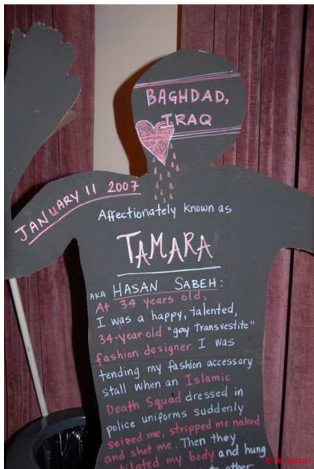 BAGHDAD,
IRAQ
JANUARY 11 2007
Affectionately known as
TAMARA
AKA HASAN SABEH:
At 34 years old,
I was a happy, talented,
34-year old "gay transvestite"
fashion designer. I was
tending my fashion accessory
stall when an Islamic
Death Squad dressed in
police uniforms suddenly
seized me, stripped me naked
and shot me. Then they
my body and hung
other